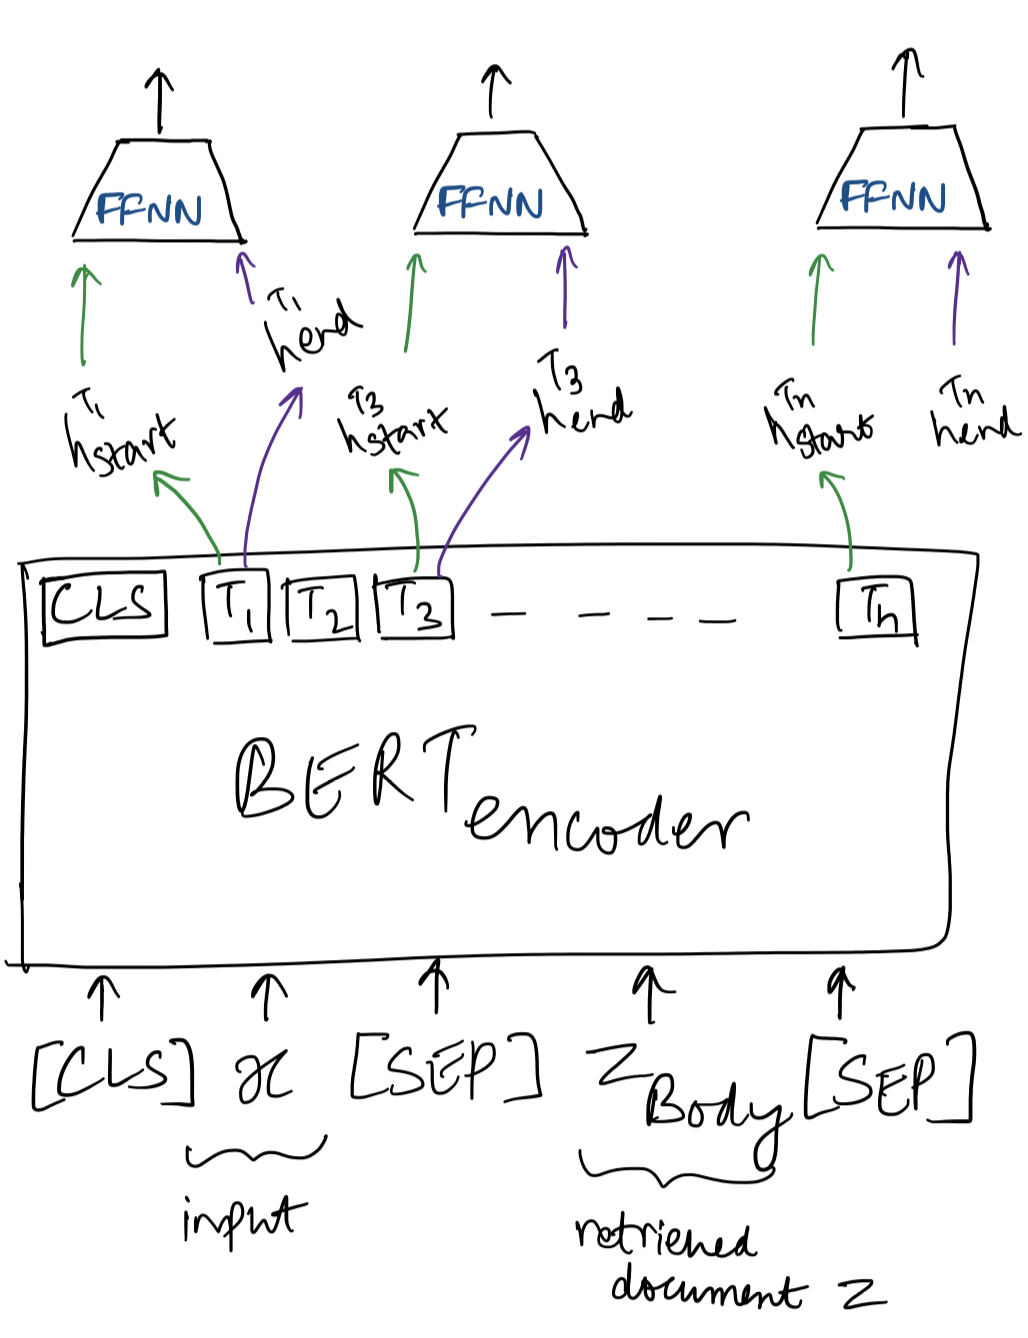 FFNN FFNN FFNN
T1 hend
T1 hstart
T3 hstart
T3 hend
Tn hstart
Tn hend
CLS T1 T2 T3 Tn
BERT encoder
[CLS] x [SEP] ZBody [SEP]
input
retrieved
document z